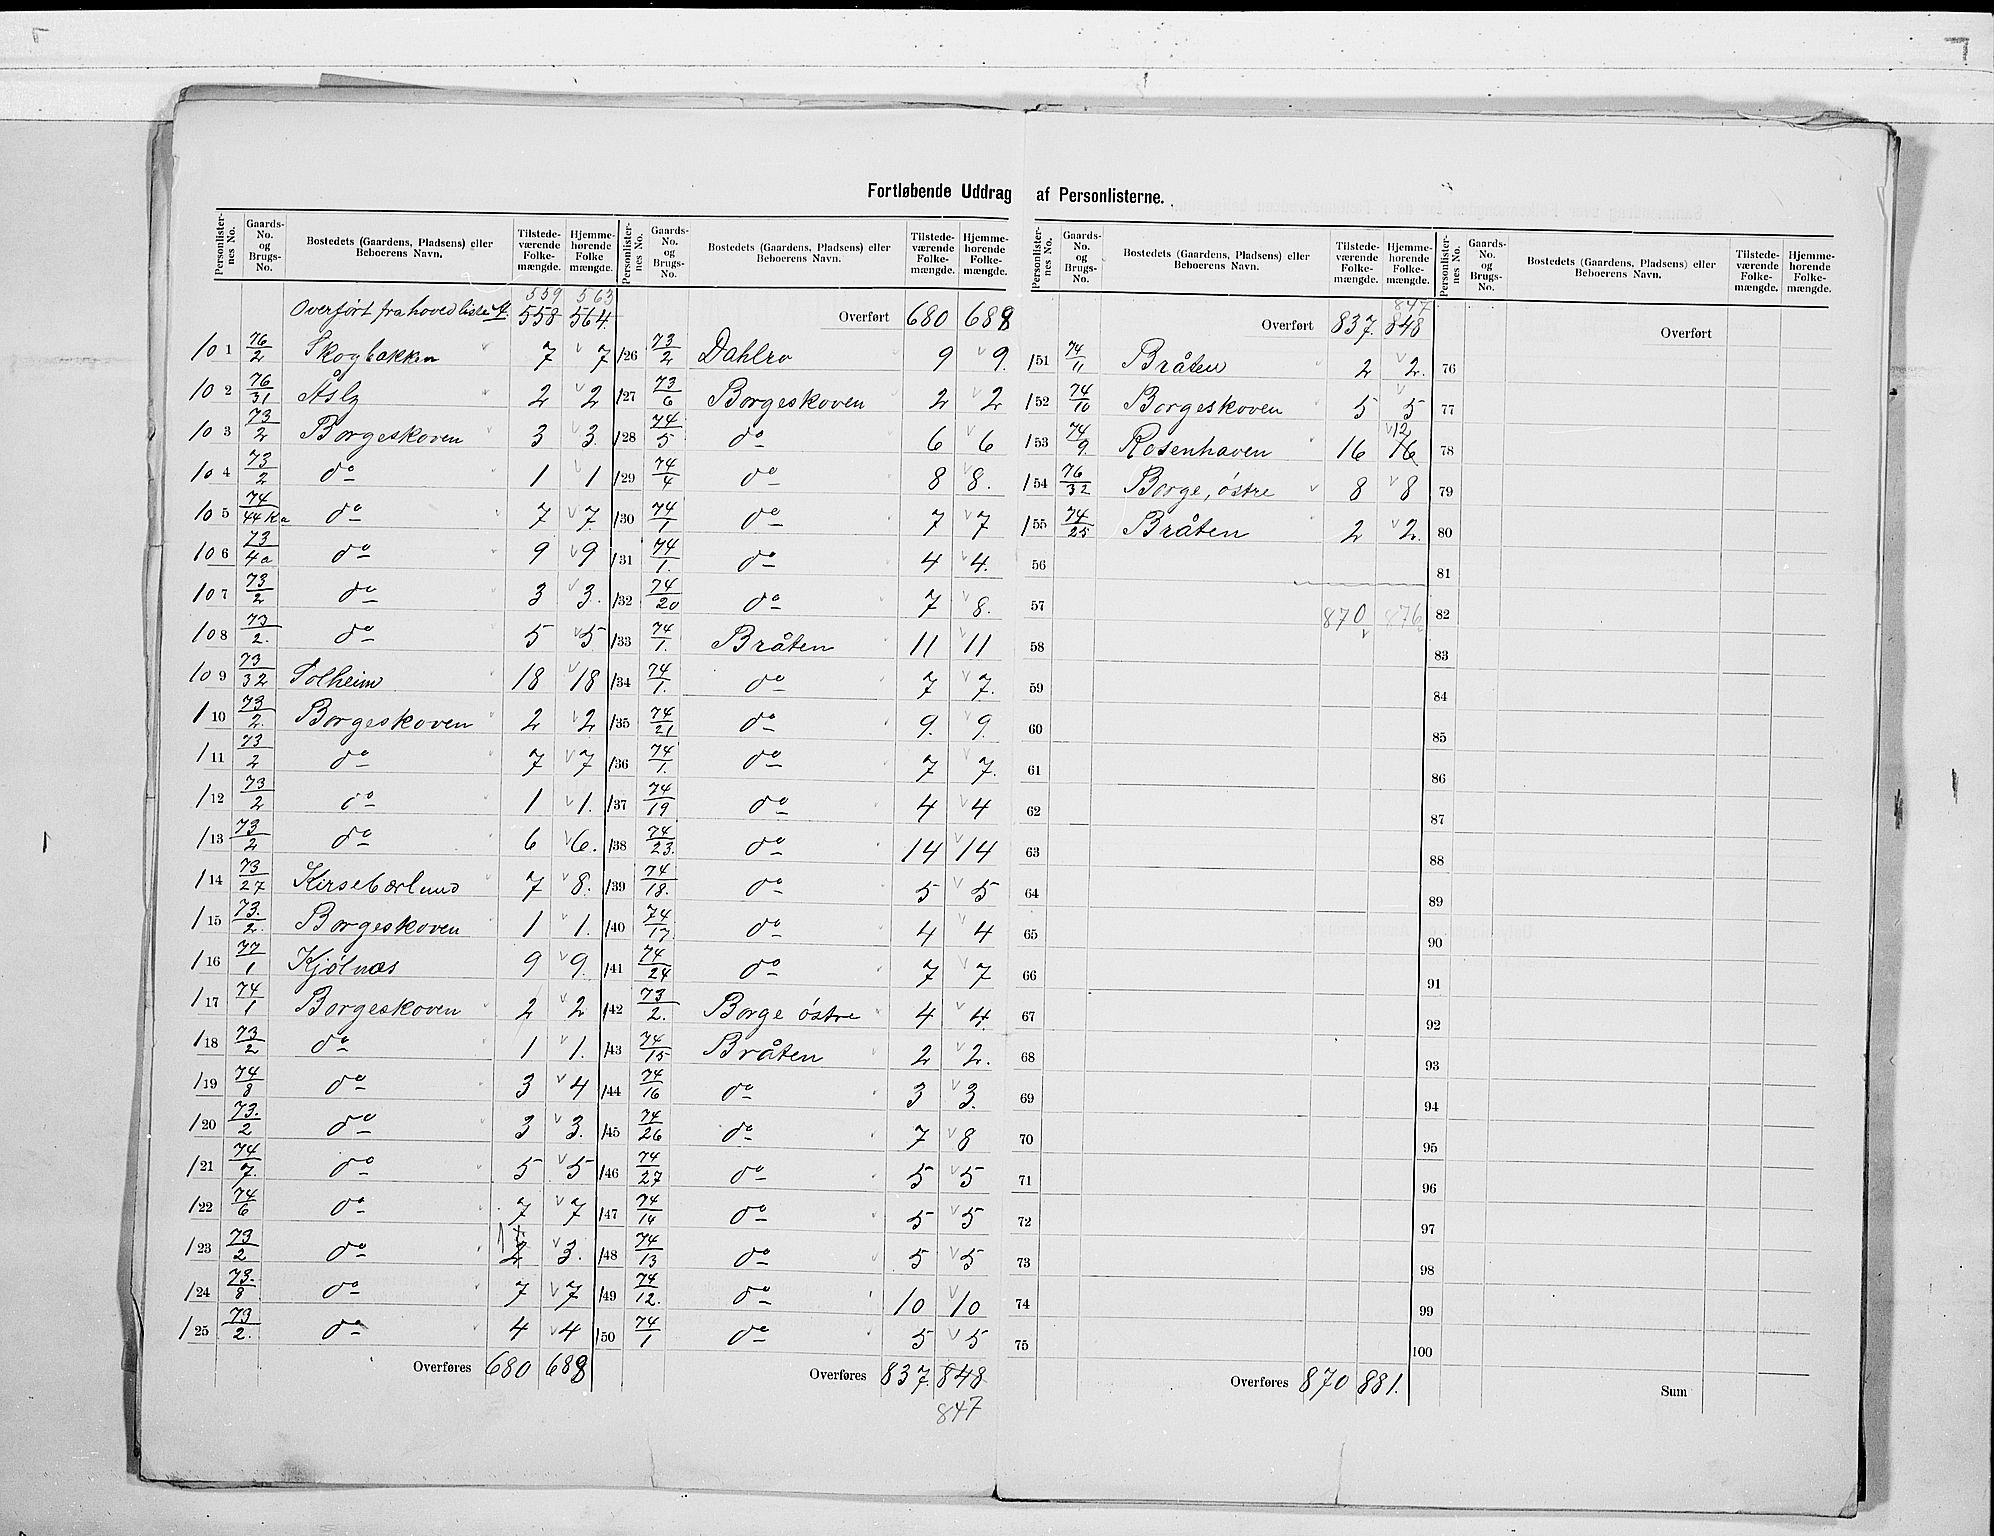 Fortløbende Uddrag af Personlisterne.
Personlister-nes No. Gaards-No. og Brugs-No. Bostedets (Gaardens, Pladsens) eller Beboerens Navn. Tilstede-værende Folke-mængde. Hjemme-hørende Folke mængde.
559 563
Overført fra hovedliste 4. 558 564.
101 76/2 Skogbakken 7 7
102 76/31 Åsly 2 2
103 73/2 Borgeskoven 3 3.
104 73/2 do 1 1
105 74/44 Ka do 7 7.
106 73/4a do 9 9
107 73/2 do 3 3.
108 73/2. do 5 5
109 73/32 Solheim 18 18
110 73/2. Borgeskoven 2 2
111 73/2 do 7 7
112 73/2 do 1 1.
113 73/2 do 6 6.
114 73/27 Kirsebærlund 7 8.
115 73./2. Borgeskoven 1 1.
116 77/1 Kjølnæs 9 9.
117 74/1 Borgeskoven 2 2
118 73/2 do 1 1.
119 74/8 do 3 4
120 73./2 do 3 3.
121 74/7. do 5 5
122 74/6 do 7 7
123 73/2 do 2 3.
124 73./8 do 7 7
125 73/2. do 4 4
Overføres 680 688
Personlister-nes No. Gaards-No. og Brugs-No. Bostedets (Gaardens, Pladsens) eller Beboerens Navn. Tilstede-værende Folke-mængde. Hjemme-hørende Folke-mængde.
Overført 680 688
126 73/2 Dahlro 9 9.
127 73/6 Borgeskoven 2 2
128 74/5 do 6 6
129 74/4 do 8 8.
130 74/1 do 7 7
131 74/1. do 4 4.
132 74/20 do 7 8.
133 74/1. Bråten 11 11
134 74/1. do 7 7.
135 74/21 do 9. 9.
136 74/1. do 7 7.
137 74/19 do 4 4
138 74/23. do 14 14
139 74/18. do 5 5
140 74/17. do 4 4
141 74/24 do 7 7
142 73/2. Borge østre 4 4.
143 74/15 Bråten 2 2.
144 74/16 do 3 3.
145 74/26 do 7 8
146 74/27 do 5 5
147 74/14 do 5 5
148 74/13 do 5 5
149 74/12. do 10 10
150 74/1 do 5 5
Overføres 837. 848
847
Personlister-nes No. Gaards-No. og Brugs-No. Bostedets (Gaardens, Pladsens) eller Beboerens Navn. Tilstede-værende Folke-mængde. Hjemme-hørende Folke-mængde.
847
Overført 837. 848
151 74/11 Bråten 2 2.
152 74/10 Borgeskoven 5 5
12
153 74/9. Rosenhaven 16 16
154 76/32 Borge, østre 8 8
155 74/25 Bråten 2 2.
56
57 870 876
58
59
60
61
62
63
64
65
66
67
68
69
70
71
72
73
74
75
Overføres 870 881.
Personlister-nes No. Gaards-No. og Brugs-No. Bostedets (Gaardens, Pladsens) eller Beboerens Navn. Tilstede-værende Folke-mængde. Hjemme-hørende Folke-mængde.
Overført
76
77
78
79
80
81
82
83
84
85
86
87
88
89
90
91
92
93
94
95
96
97
98
99
100
Sum